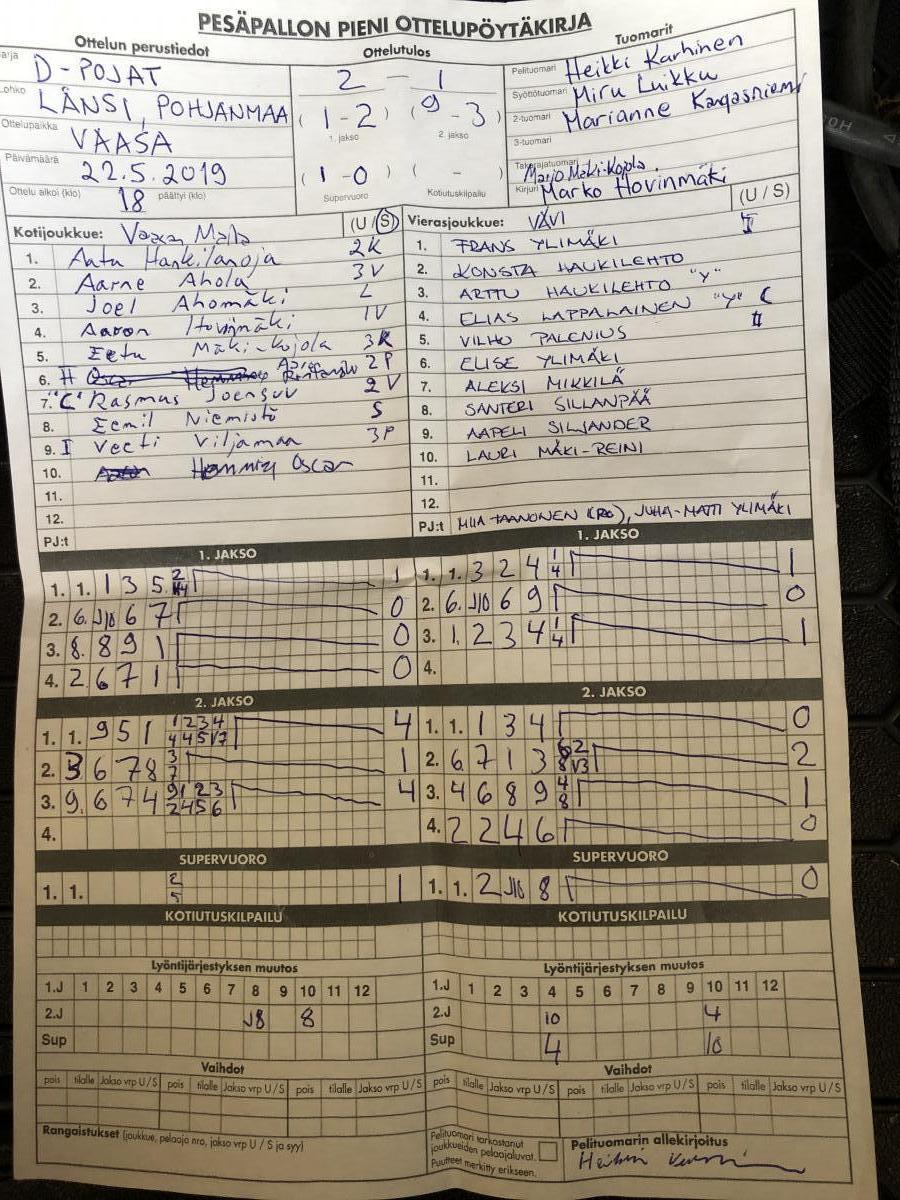 PESÄPALLON PIENI OTTELUPÖYTÄKIRJA
Ottelun perustiedot
Ottelutulos
Tuomarit
D-POJAT
LÄNSI, POHJANMAA
Ottelupaikka
VAASA
Päivämäärä
22.5.2019
Ottelu alkoi (klo) 18 päättyi (klo)
2 - 1
(1-2) (9-3)
1. jakso 2. jakso
(1-0) ( - )
Supervuoro Kotiutuskilpailu
Pelituomari Heikki Karhinen
Syöttötuomari Miru Luikku
2-tuomari Marianne Kangasniemi
3-tuomari
Takarajatuomari Marjo Mäki-Kojola
Kirjuri Marko Hovinmäki
Kotijoukkue: Vaasan Maila (U/S)
1. Antu Hankilanoja 2K
2. Aarne Ahola 3V
3. Joel Ahomäki L
4. Aaron Hovinmäki 1V
5. Eetu Mäki-Kojola 3K
6. 2P
7. "C" Rasmus Joensuu 2V
8. Eemil Niemistö S
9. I Veeti Viljamaa 3P
10. Oscar
11.
12.
PJ:t
Vierasjoukkue: VÄVI (U/S)
1. FRANS YLIMÄKI I
2. KONSTA HAUKILEHTO
3. ARTTU HAUKILEHTO "Y"
4. ELIAS LAPPALAINEN "Y" C
5. VILHO PALENIUS II
6. ELISE YLIMÄKI
7. ALEKSI MIKKILÄ
8. SANTERI SILLANPÄÄ
9. AAPELI SILJANDER
10. LAURI MÄKI-REINI
11.
12.
PJ:t MIIA TAANONEN (PO), JUHA-MATTI YLIMÄKI
1. JAKSO
1. 1. 1 3 5 1
2. 6. J10 6 7 0
3. 8. 8 9 1 0
4. 2. 6 7 1 0
1. JAKSO
1. 1. 3 2 4 1/4 1
2. 6. J10 6 9 0
3. 1. 2 3 4 1/4 1
4.
2. JAKSO
1. 1. 9 5 1 1 2 3 4 4
4 4 5 J7
2. 3 6 7 8 3/7 1
3. 9. 6 7 4 9 1 2 3 4
2 4 5 6
4.
2. JAKSO
1. 1. 1 3 4 0
2. 6 7 1 3 2
3. 4 6 8 9 4/8 1
4. 2 2 4 6 0
SUPERVUORO
1. 1. 2/5 1
SUPERVUORO
1. 1. 2 J10 8 0
KOTIUTUSKILPAILU
KOTIUTUSKILPAILU
Lyöntijärjestyksen muutos
1.J 1 2 3 4 5 6 7 8 9 10 11 12
2.J J8 8
Sup
Lyöntijärjestyksen muutos
1.J 1 2 3 4 5 6 7 8 9 10 11 12
2.J 10 4
Sup 4 10
Vaihdot
pois tilalle Jakso vrp U/S pois tilalle Jakso vrp U/S pois tilalle Jakso vrp U/S
Vaihdot
pois tilalle Jakso vrp U/S pois tilalle Jakso vrp U/S pois tilalle Jakso vrp U/S
Rangaistukset (joukkue, pelaaja nro, jakso vrp U / S ja syy)
Pelituomari tarkastanut
joukkueiden pelaajaluvat.
Puutteet merkitty erikseen.
Pelituomarin allekirjoitus